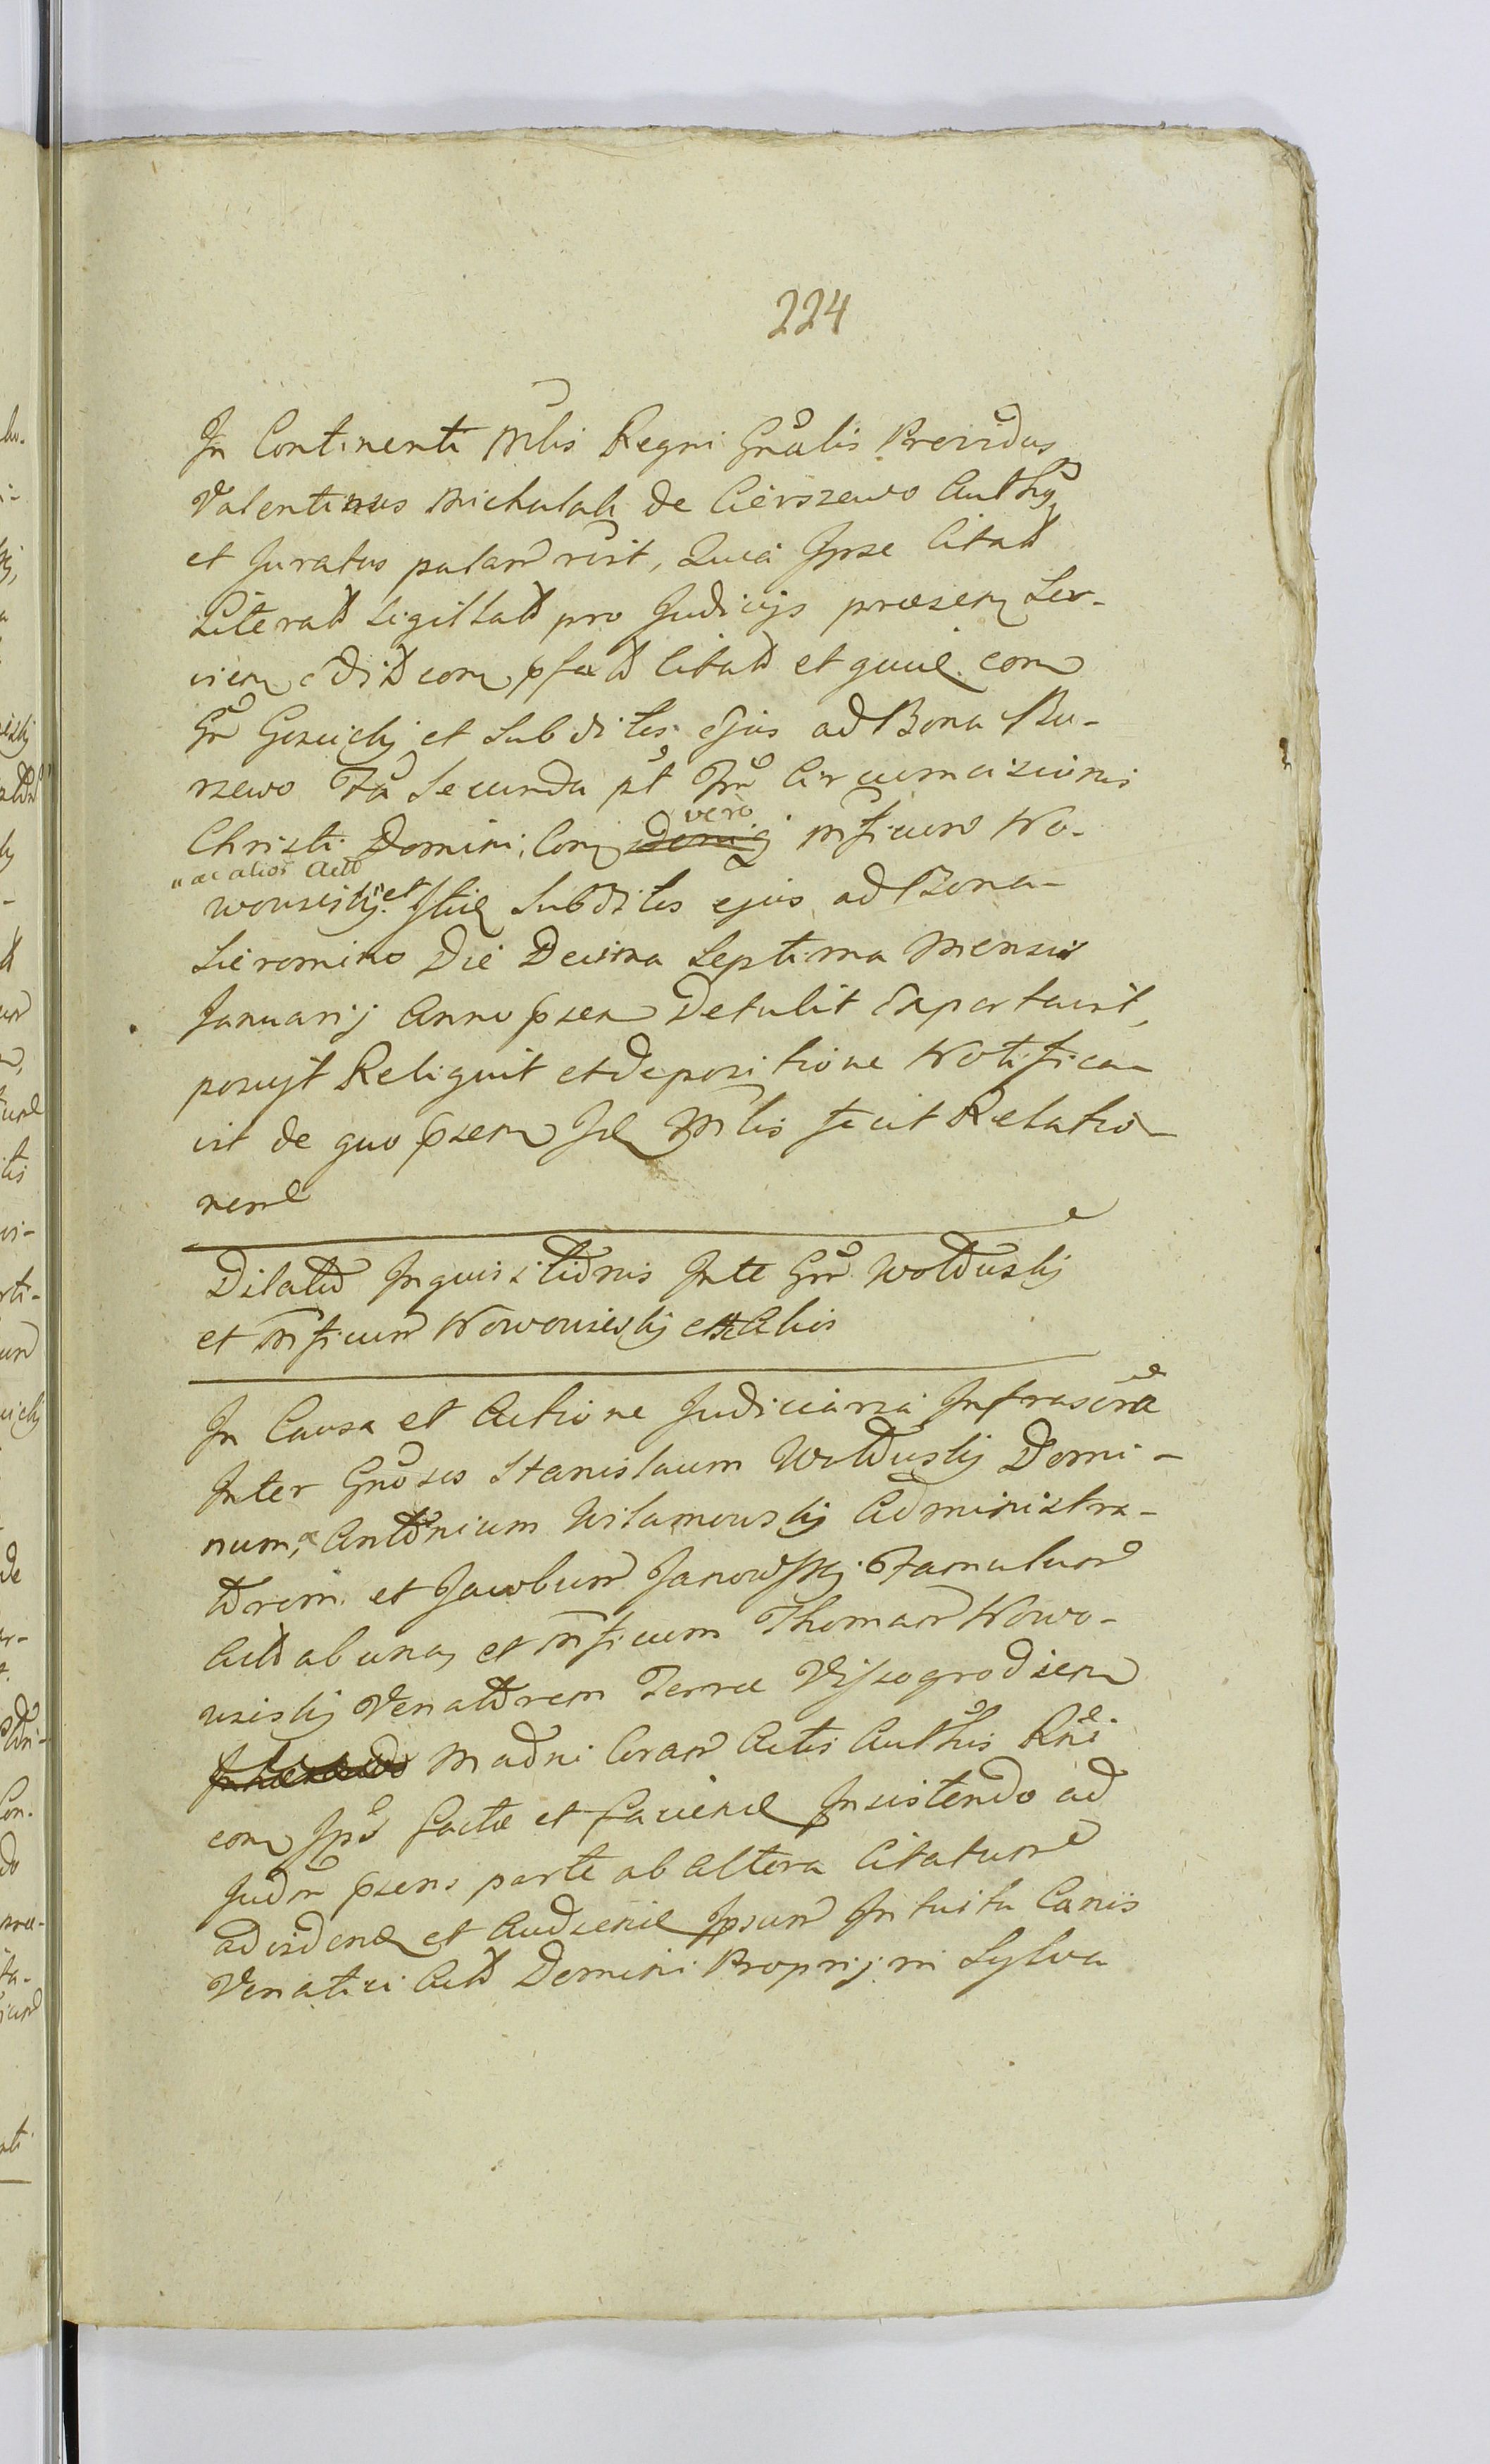 224
In Continenti Mlis Regni Gnalis Providus
Valentinus Michalak de Cierszewo Authus
et Juratus palam rcit, Quia Ipse Citat
Literat Sigillat pro Judicijs praesen Ser-
vien contra
Gn et Subditos ejus ad Bona Bu-
rzewo Fa Secunda pt Fm Circumcisionis
Christi Domini, Con vero Mficum No-
"ac alios Actt
wowieskij" et Subditos ejus ad Bona
Sieromino Die Decima Septima Mensis
Januarij Anno psen Detulit Exportavit,
posuyt Reliquit et depositione Notifica-
vit de quo psens Ids Mlis fecit Relatio-
nem
Dilatio Inquisitionis Inte Gm Woltuskij
et Mficum Nowowieskij et Alios
In Causa et Actione Judiciaria Infrascra
Inter Gnosos Stanislaum Woltuskij Domi-
num, Antonium Wilamowskij Administra-
torem et Jacobum Janowskij Famulum
Actt ab una et Mficum Thomam Nowo-
wieskij Venatorem Terrae Vyssogrodien
Madni Coram Actis Authis Rni
con Ipso factae et faciend Insistendo ad
Judm psens parte ab altera Citatum
ad vidend et Audiend Ipsum Intuitu Canis
Venatici Actt Domini Proprij in Sylva